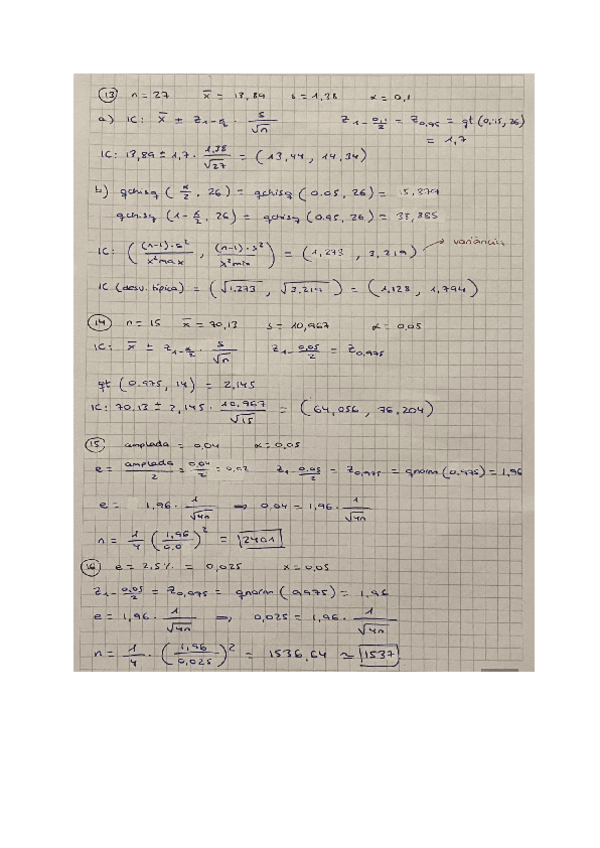 13 n = 27 x̄ = 13,89 s = 1,38 α = 0,1
a) IC: x̄ ± z₁₋α/₂ · s/√n z₁₋0,1/2 = z₀,₉₅ = qt(0,95, 26)
= 1,7
IC: 13,89 ± 1,7 · 1,38/√27 = (13,44, 14,34)
b) qchisq(α/2, 26) = qchisq(0.05, 26) = 15,379
qchisq(1-α/2, 26) = qchisq(0.95, 26) = 38,885
IC: ((n-1)·s²/x²max, (n-1)·s²/x²min) = (1,273, 3,219) → variància
IC (desv. típica) = (√1,273, √3,219) = (1,128, 1,794)
14 n = 15 x̄ = 70,13 s = 10,967 α = 0,05
IC: x̄ ± z₁₋α/₂ · s/√n z₁₋0,05/2 = z₀,₉₇₅
qt(0.975, 14) = 2,145
IC: 70,13 ± 2,145 · 10,967/√15 = (64,056, 76,204)
15 amplada = 0,04 α = 0,05
e = amplada/2 = 0,04/2 = 0,02 z₁₋0,05/2 = z₀,₉₇₅ = qnorm(0.975) = 1,96
e = 1,96 · 1/√4n ⇒ 0,04 = 1,96 · 1/√4n
n = 1/4 (1,96/0,0)² = 2401
16 e = 2,5% = 0,025 α = 0,05
z₁₋0,05/2 = z₀,₉₇₅ = qnorm(0,975) = 1,96
e = 1,96 · 1/√4n ⇒ 0,025 = 1,96 · 1/√4n
n = 1/4 · (1,96/0,025)² = 1536,64 ≃ 1537